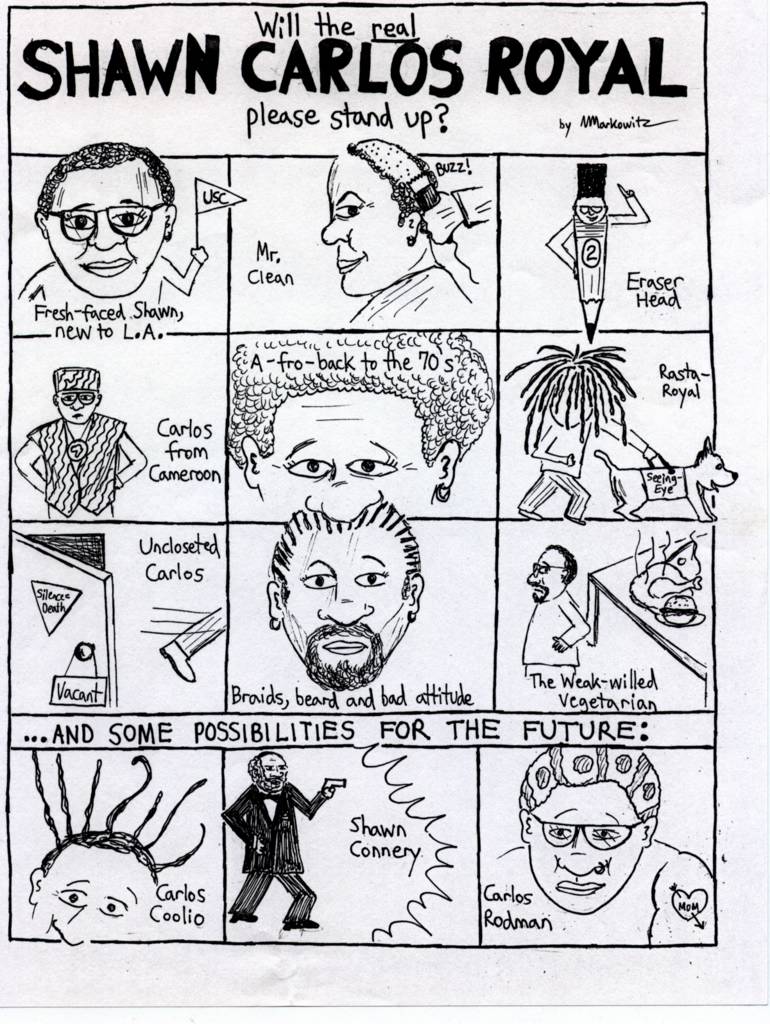 Will the real
SHAWN CARLOS ROYAL
please stand up?
by NMarkowitz
USC
Fresh-faced Shawn,
new to L.A.
BUZZ!
Mr.
Clean
2
Eraser
Head
Carlos
from
Cameroon
A-fro-back to the 70's
Rasta-
Royal
Seeing-
Eye
Uncloseted
Carlos
Silence=
Death
Vacant
Braids, beard and bad attitude
The Weak-willed
Vegetarian
...AND SOME POSSIBILITIES FOR THE FUTURE:
Carlos
Coolio
Shawn
Connery
Carlos
Rodman
MOM